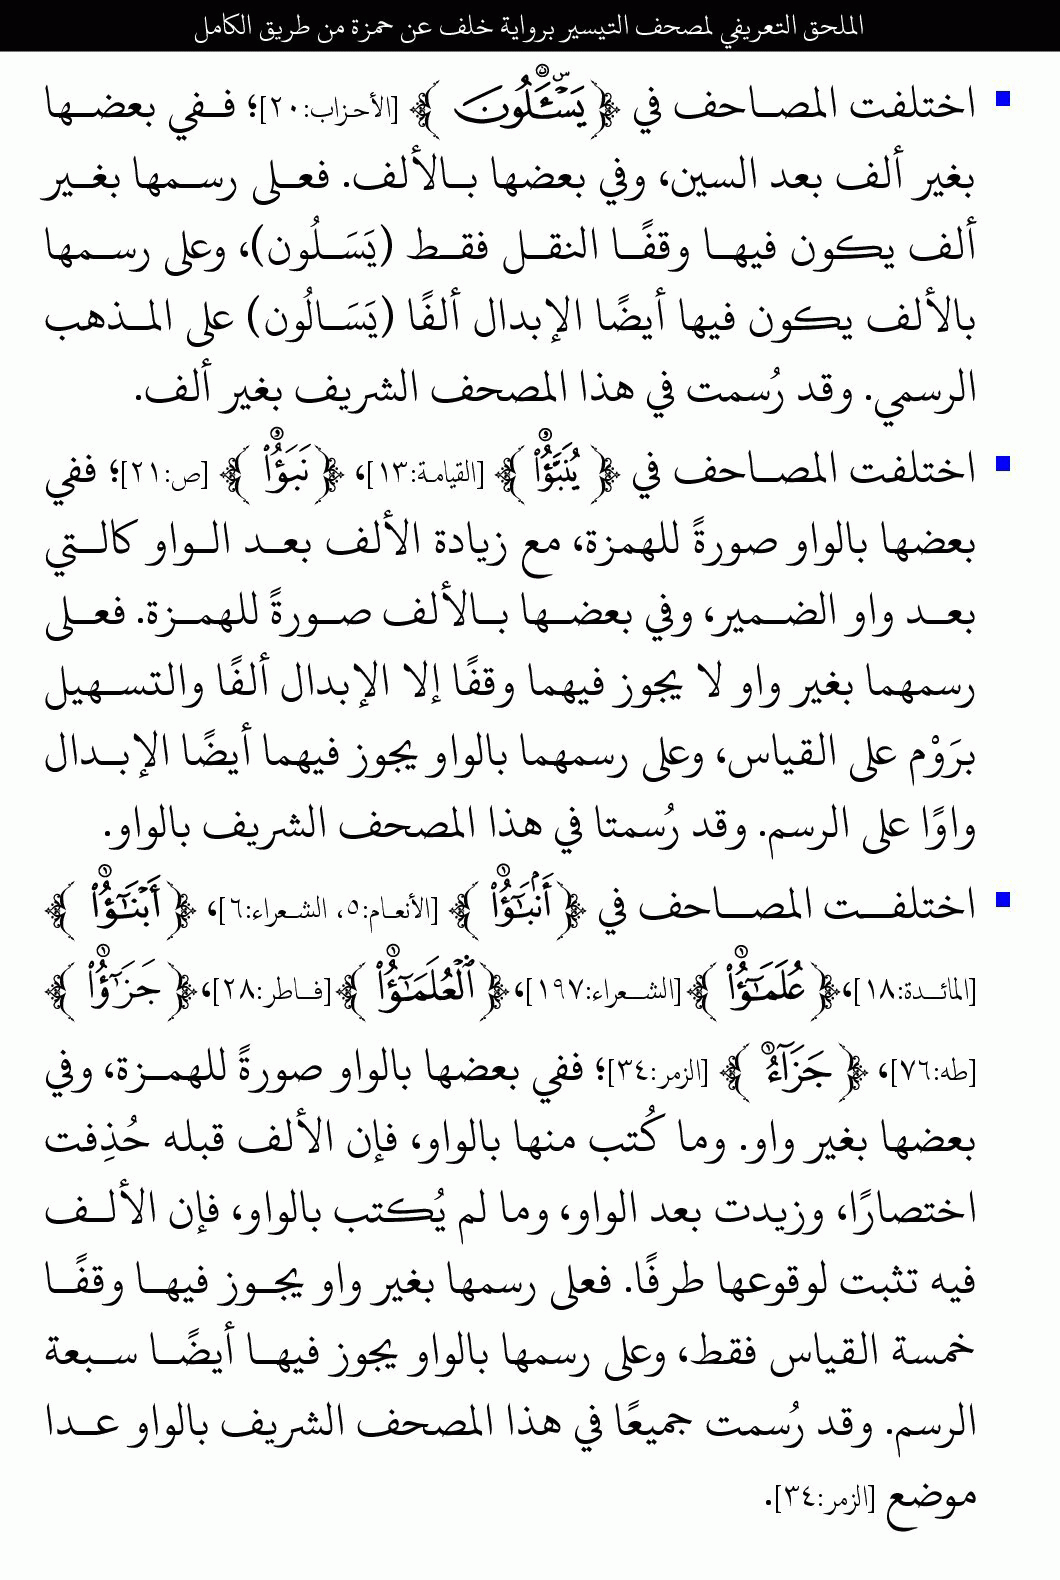 الملحق التعريفي لمصحف التيسير برواية خلف عن حمزة من طريق الكامل
▪ اختلفت المصاحف في ﴿يَسْـَٔلُونَ﴾ [الأحزاب:٢٠]؛ ففي بعضها
بغير ألف بعد السين، وفي بعضها بالألف. فعلى رسمها بغير
ألف يكون فيها وقفًا النقل فقط (يَسَلُون)، وعلى رسمها
بالألف يكون فيها أيضًا الإبدال ألفًا (يَسَالُون) على المذهب
الرسمي. وقد رُسمت في هذا المصحف الشريف بغير ألف.
▪ اختلفت المصاحف في ﴿يُنَبَّؤُاْ﴾ [القيامة:١٣]، ﴿نَبَؤُاْ﴾ [ص:٢١]؛ ففي
بعضها بالواو صورةً للهمزة، مع زيادة الألف بعد الواو كالتي
بعد واو الضمير، وفي بعضها بالألف صورةً للهمزة. فعلى
رسمهما بغير واو لا يجوز فيهما وقفًا إلا الإبدال ألفًا والتسهيل
برَوْم على القياس، وعلى رسمهما بالواو يجوز فيهما أيضًا الإبدال
واوًا على الرسم. وقد رُسمتا في هذا المصحف الشريف بالواو.
▪ اختلفت المصاحف في ﴿أَنۢبَٰٓؤُاْ﴾ [الأنعام:٥، الشعراء:٦]، ﴿أَبْنَٰٓؤُاْ﴾
[المائدة:١٨]، ﴿عُلَمَٰٓؤُاْ﴾ [الشعراء:١٩٧]، ﴿ٱلْعُلَمَٰٓؤُاْ﴾ [فاطر:٢٨]، ﴿جَزَٰٓؤُاْ﴾
[طه:٧٦]، ﴿جَزَآءُ﴾ [الزمر:٣٤]؛ ففي بعضها بالواو صورةً للهمزة، وفي
بعضها بغير واو. وما كُتب منها بالواو، فإن الألف قبله حُذِفت
اختصارًا، وزيدت بعد الواو، وما لم يُكتب بالواو، فإن الألف
فيه تثبت لوقوعها طرفًا. فعلى رسمها بغير واو يجوز فيها وقفًا
خمسة القياس فقط، وعلى رسمها بالواو يجوز فيها أيضًا سبعة
الرسم. وقد رُسمت جميعًا في هذا المصحف الشريف بالواو عدا
موضع [الزمر:٣٤].